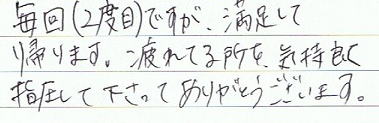 毎回(2度目)ですが、満足して
帰ります。疲れてる所を、気持良く
指圧して下さってありがとうございます。